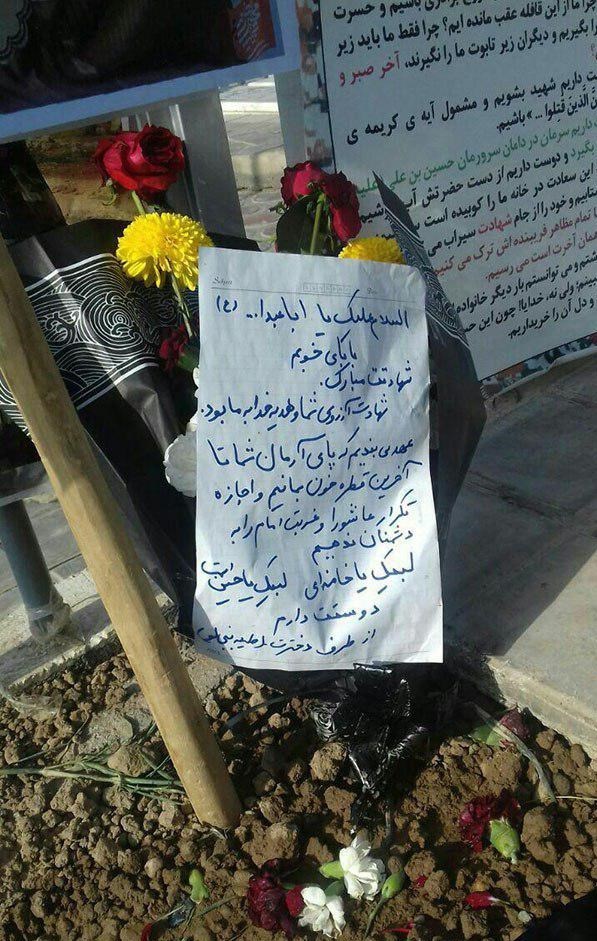 باشیم و حسرت
چرا ما از این قافله عقب مانده ایم؟ چرا فقط ما باید زیر
را بگیریم و دیگران زیر تابوت ما را نگیرند، آخر صبر و
ت داریم شهید بشویم و مشمول آیه ی کریمه ی
الَّذین قتلوا ...» باشیم.
داریم سرمان در دامان سرورمان حسین بن علی علیه
بگیرد و دوست داریم از دست حضرتش آب
این سعادت در خانه ما را کوبیده است
و خود را از جام شهادت سیراب می
تمام مظاهر فریبنده اش ترک می کنیم
همان آخرت است می رسیم.
و می توانستم بار دیگر خانواده
ولی نه، خدایا! چون این
و دل آن را خریداریم.
السلام علیک یا اباعبدا... (ع)
بابای خوبم
شهادتت مبارک.
شهادت آرزوی شما و هدیه خدا به ما بود.
عهد می بندیم که پای آرمان شما تا
آخرین قطره خون بمانیم و اجازه
تکرار عاشورا و غربت امام را به
دشمنان ندهیم
لبیک یا خامنه ای لبیک یا حسین است
دوستت دارم
از طرف دخترت